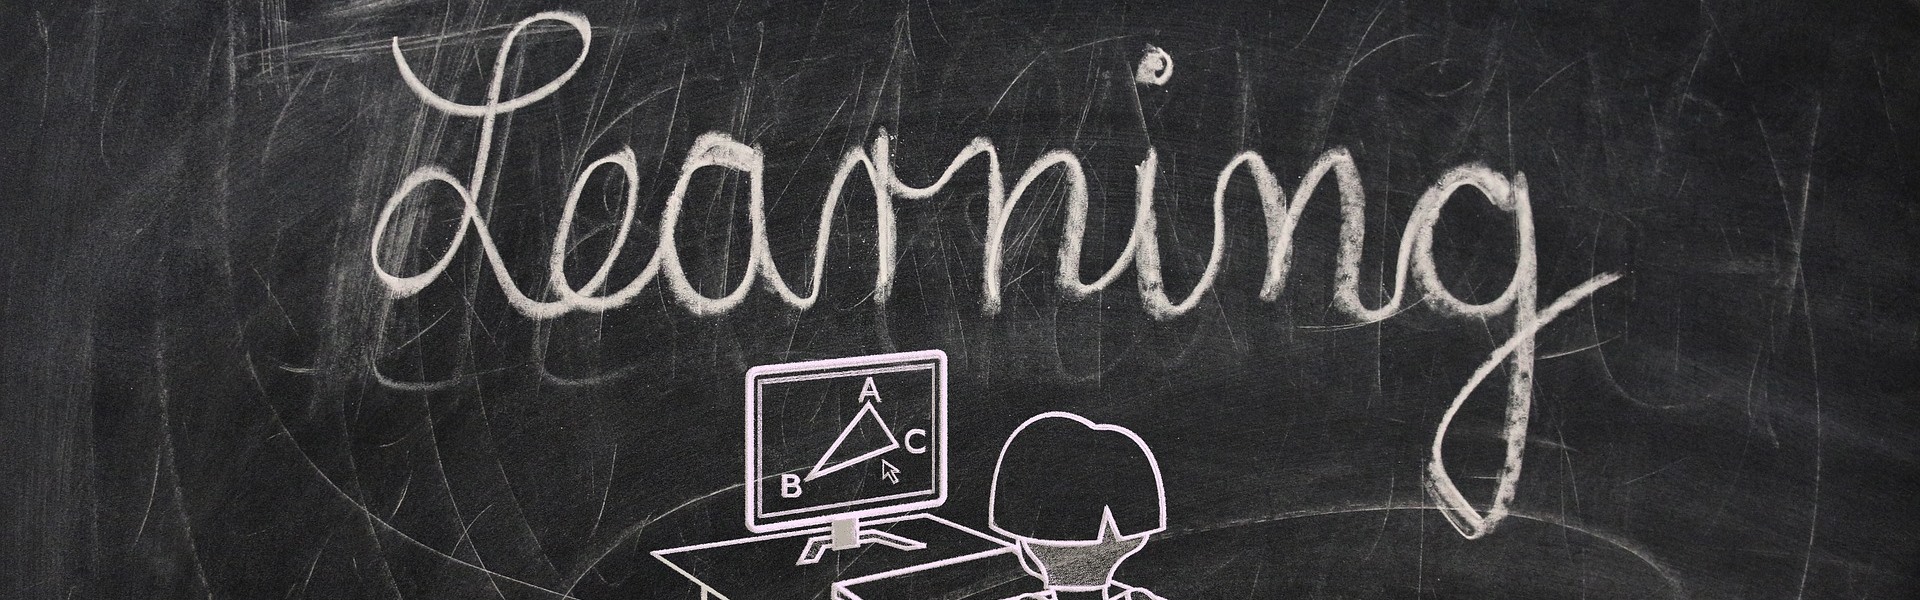 Learning
A
C
B